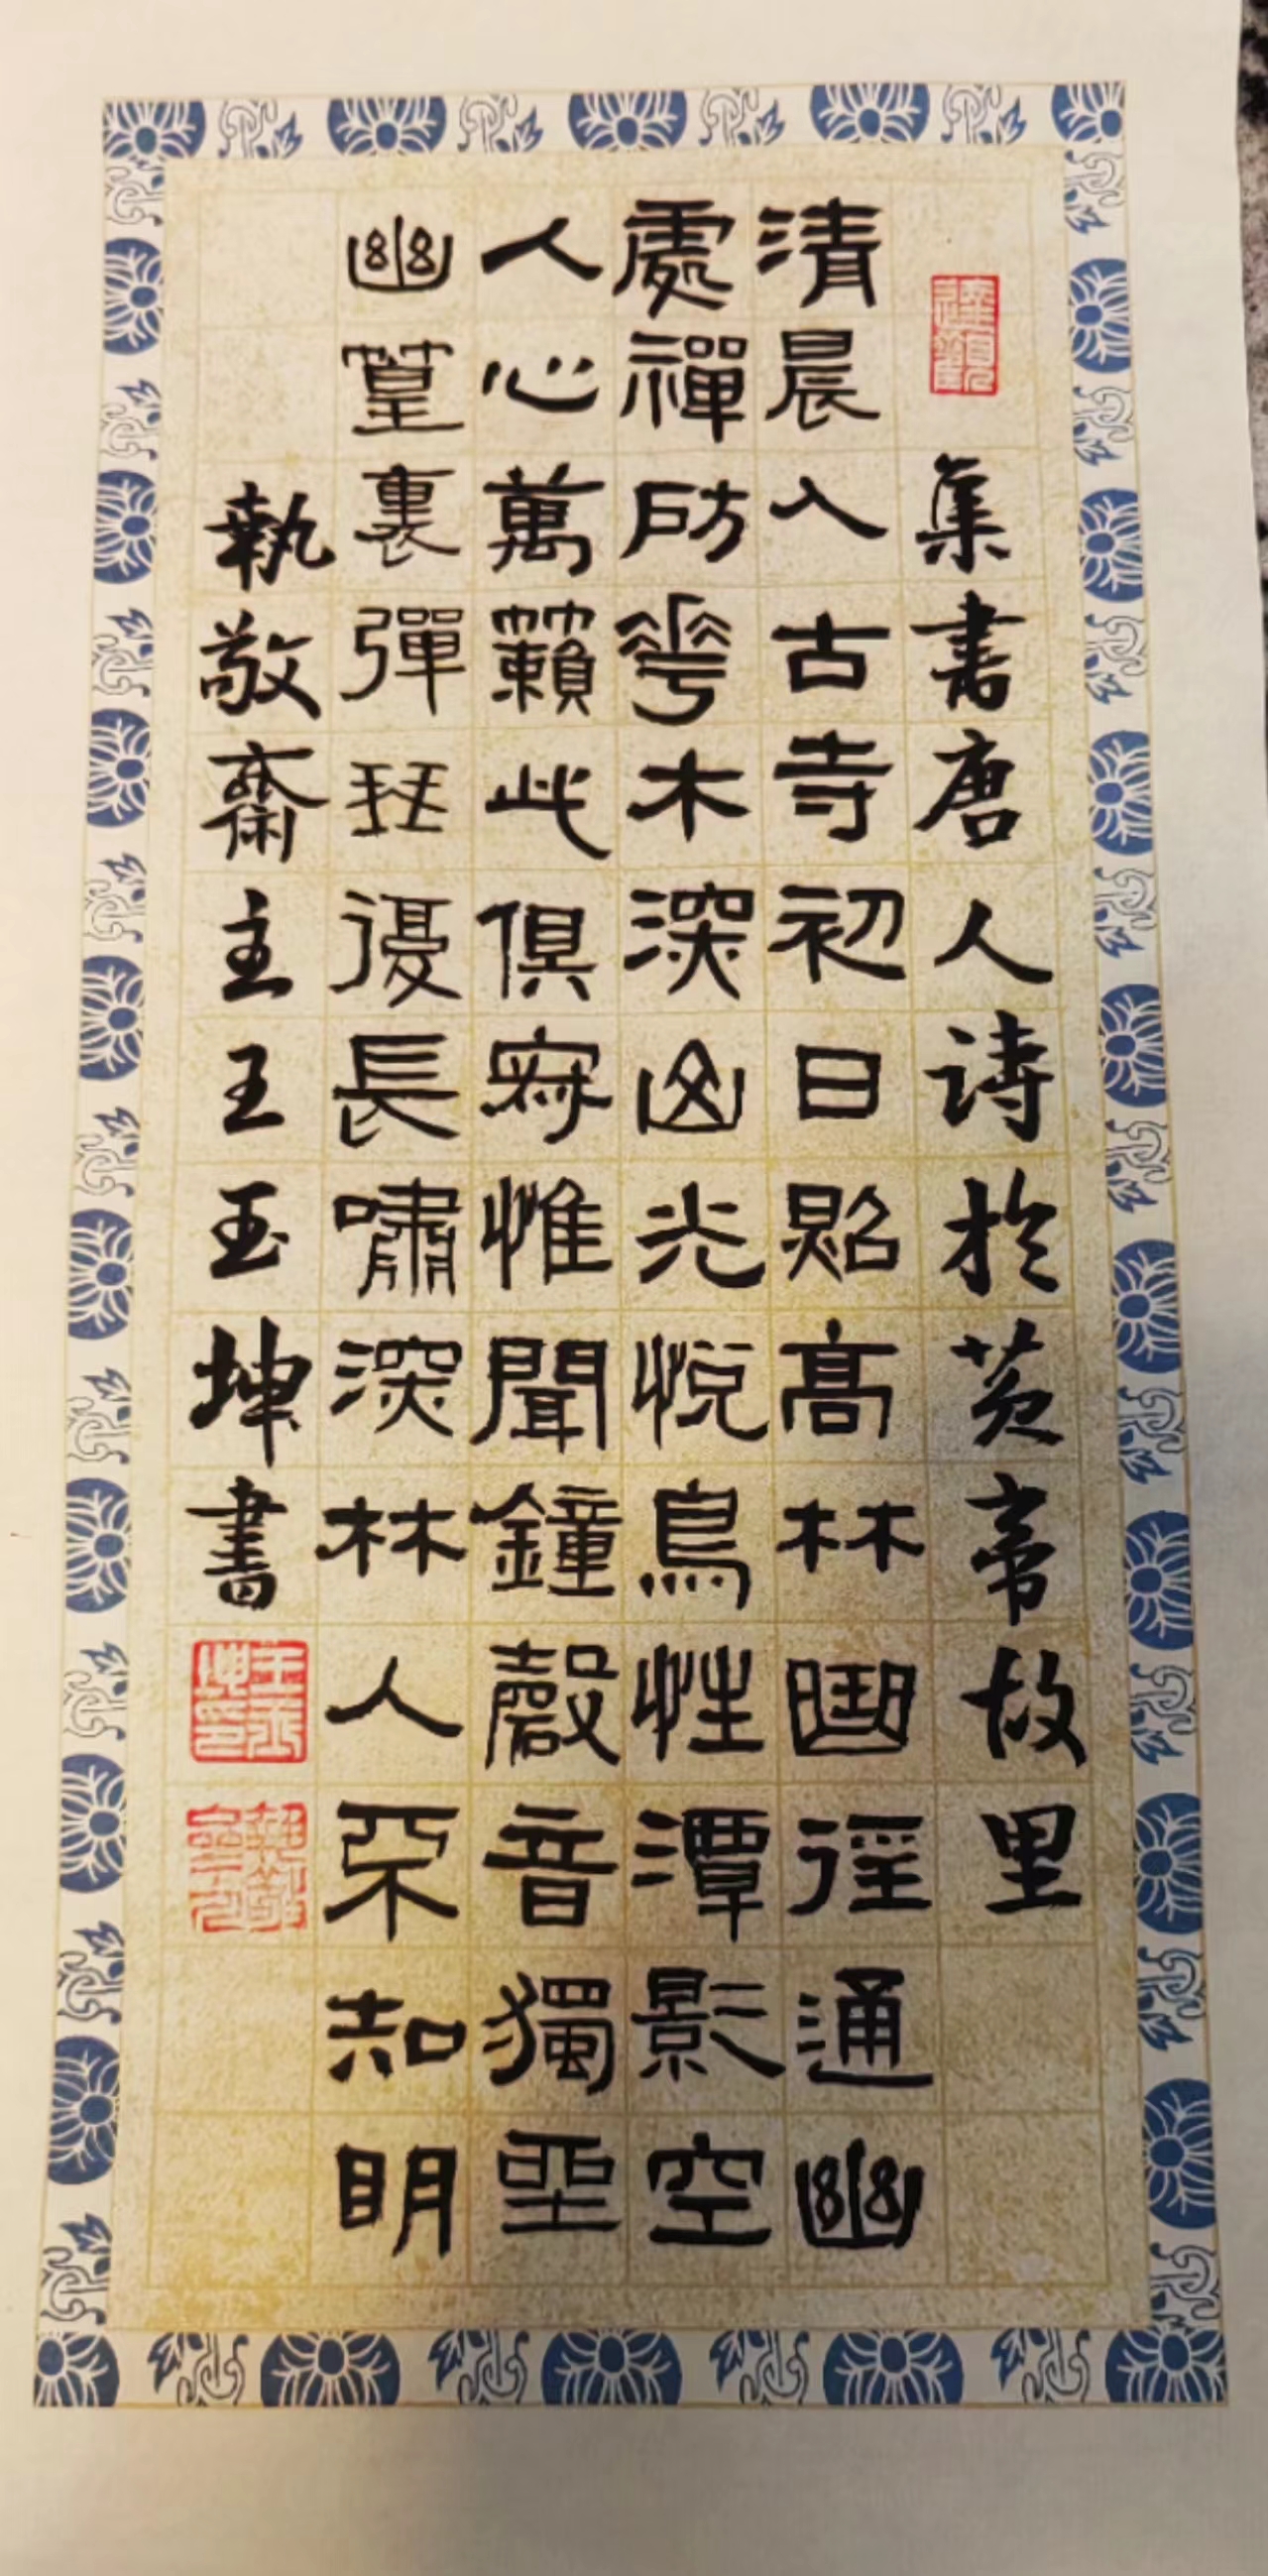 達觀
集書唐人詩於黃帝故里
清晨入古寺初日照高林曲徑通幽
處禪房花木深山光悅鳥性潭影空
人心萬籟此俱寂惟聞鐘磬音獨坐
幽篁裏彈琴復長嘯深林人不知明
執敬齋主王玉坤書
王玉坤印